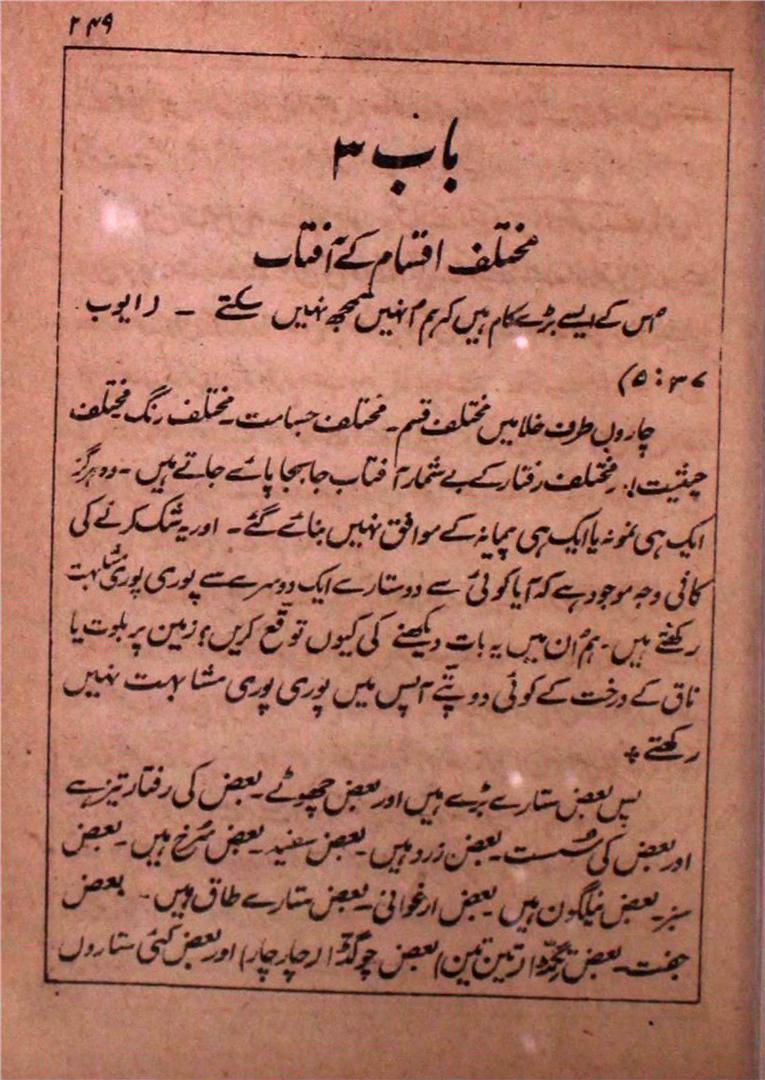 ۲۴۹
باب ۳
مختلف اقسام کے آفتاب
اس کے ایسے بڑے کام ہیں کہ ہم انہیں سمجھ نہیں سکتے ۔ (ایوب
۳۷ : ۵)
چاروں طرف خلا میں مختلف قسم ۔ مختلف جسامت ۔ مختلف رنگ مختلف
حیثیت اور مختلف رفتار کے بے شمار آفتاب جابجا پائے جاتے ہیں ۔ وہ ہرگز
ایک ہی نمونہ یا ایک ہی پیمانہ کے موافق نہیں بنائے گئے ۔ اور یہ شک کرنے کی
کافی وجہ موجود ہے کہ آیا کوئی سے دو ستارے ایک دوسرے سے پوری پوری مشابہت
رکھتے ہیں ۔ ہم اُن میں یہ بات دیکھنے کی کیوں توقع کریں ؟ زمین پر بلوت یا
ناق کے درخت کے کوئی دو پتّے آپس میں پوری پوری مشابہت نہیں
رکھتے +
پس بعض ستارے بڑے ہیں اور بعض چھوٹے ۔ بعض کی رفتار تیز ہے
اور بعض کی سُست ۔ بعض زرد ہیں ۔ بعض سفید ۔ بعض سُرخ ہیں ۔ بعض
سبز ۔ بعض نیلگون ہیں بعض ارغوانی ۔ بعض ستارے طاق ہیں ۔ بعض
جفت ۔ بعض (تین تین) بعض چوگڈّا (چار چار) اور بعض کئی ستاروں